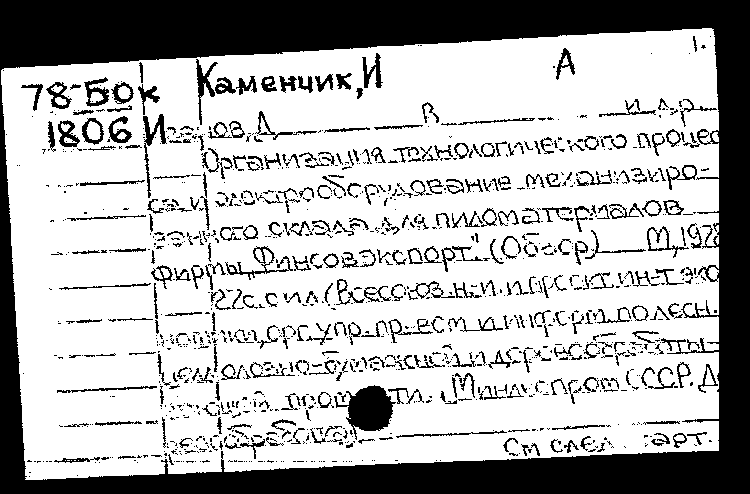 1.
78-БОк Каменчик, И А
1806 И ов, Д В и др.
Организация технологического процес
са и электрооборудование механизиро-
ванного склада для пиломатериалов
фирмы "Финсовэкспорт". (Обзор) М, 1978
22с. с ил. (Всесоюз. н.-и. и проект. ин-т эко
номики, орг. упр. пр-вом и информ. по лесн.
целлюлозно-бумажной и деревообрабаты-
вающей пром ти. Минлеспром СССР. Де
ревообработка)
См след карт.